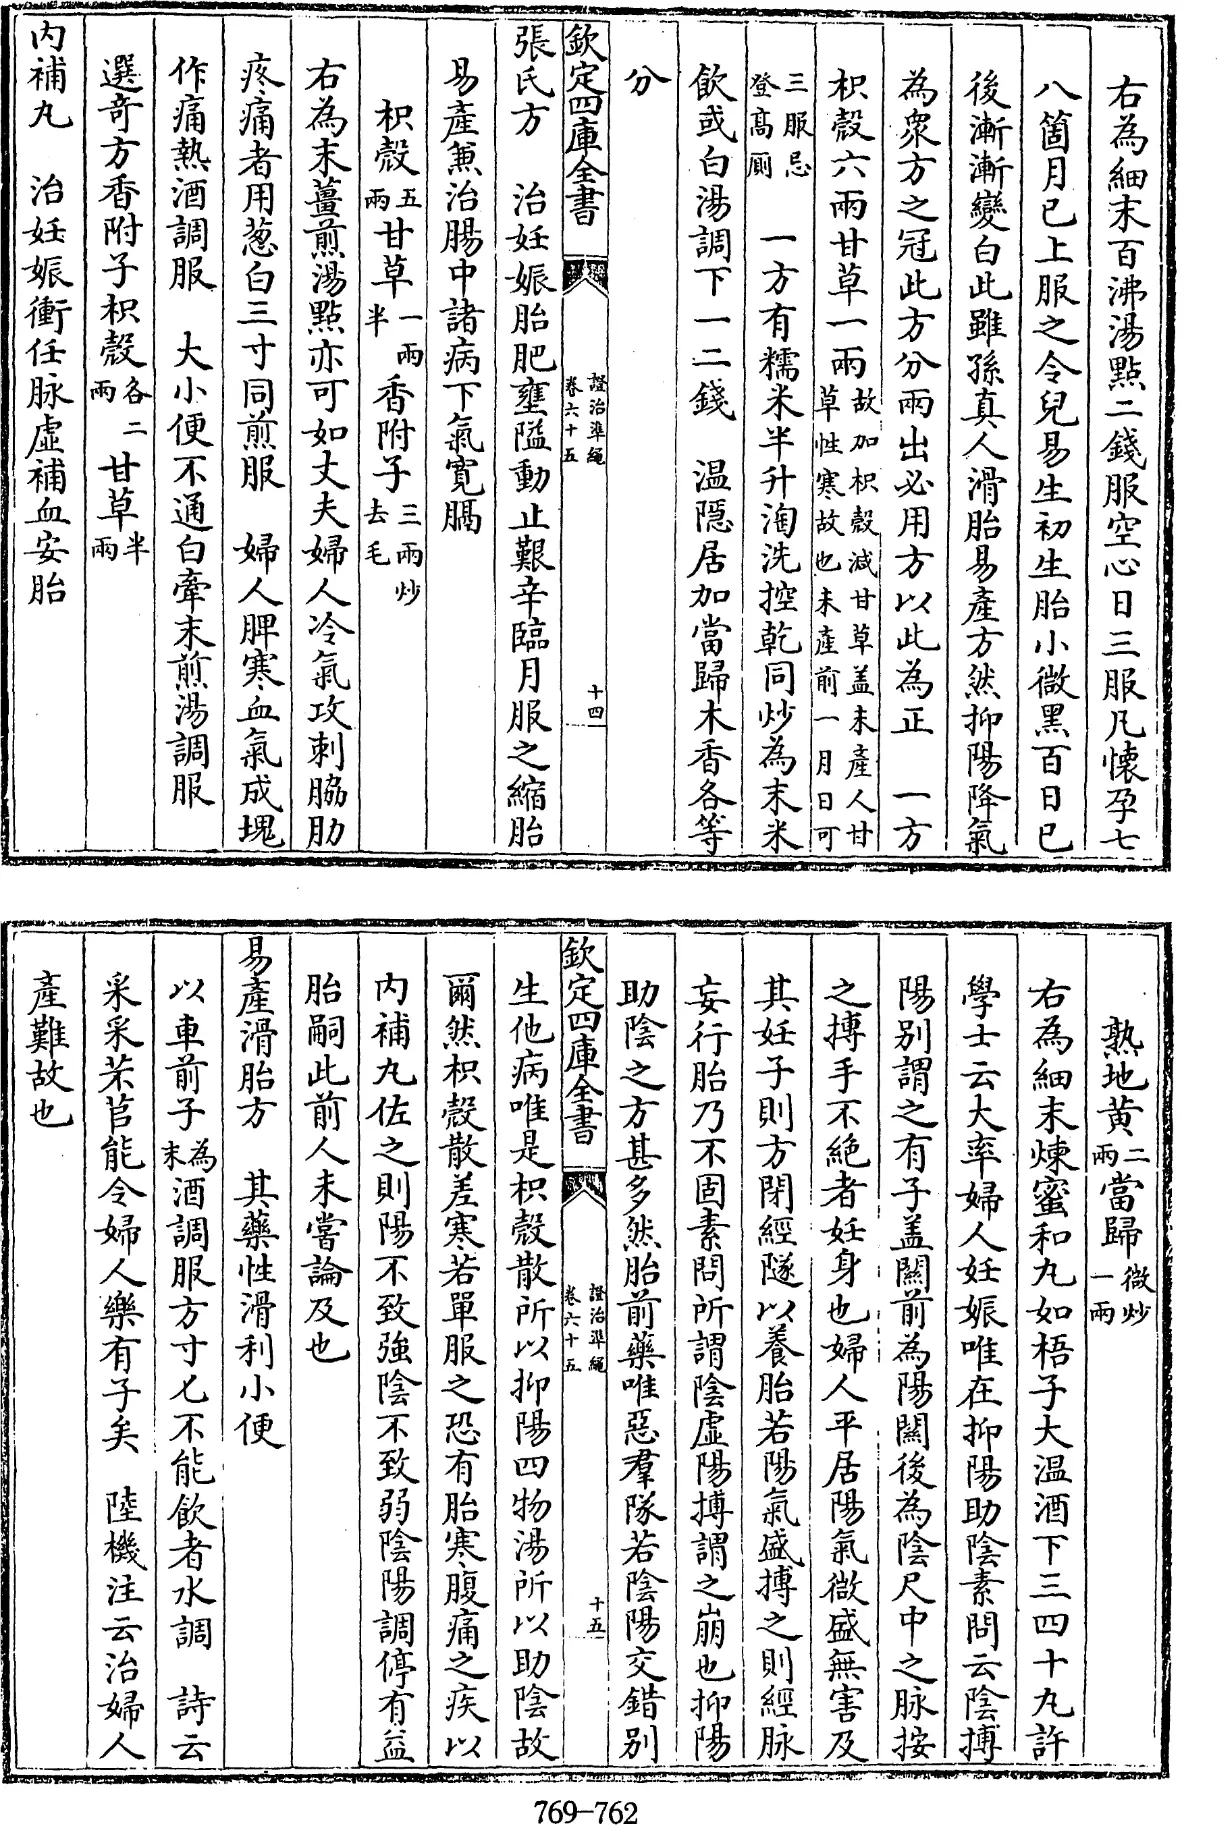 右為細末百沸湯㸃二錢服空心日三服凡懐孕七
八箇月已上服之令兒易生初生胎小微黑百日已
後漸漸變白此雖孫真人滑胎易產方然抑陽降氣
為衆方之冠此方分兩出必用方以此為正　一方
枳殼六兩甘草一兩故加枳殼減甘草盖未產人甘草性寒故也未產前一月日可
三服忌登髙厠　一方有糯米半升淘洗控乾同炒為末米
飲或白湯調下一二錢　温隠居加當歸木香各等
分
欽定四庫全書　證治準繩　卷六十五　十四
張氏方　治妊娠胎肥壅隘動止艱辛臨月服之縮胎
易產兼治腸中諸病下氣寛膈
枳殼五兩甘草一兩半香附子三兩炒去毛
右為末薑煎湯㸃亦可如丈夫婦人冷氣攻刺脇肋
疼痛者用葱白三寸同煎服　婦人脾寒血氣成塊
作痛熱酒調服　大小便不通白牽末煎湯調服
選竒方香附子枳殼各二兩甘草半兩
内補丸　治妊娠衝任脉虛補血安胎
熟地黄二兩當歸微炒一兩
右為細末煉蜜和丸如梧子大温酒下三四十丸許
學士云大率婦人妊娠唯在抑陽助陰素問云陰搏
陽别謂之有子盖闗前為陽闗後為陰尺中之脉按
之搏手不絶者妊身也婦人平居陽氣微盛無害及
其妊子則方閉經隧以養胎若陽氣盛搏之則經脉
妄行胎乃不固素問所謂陰虛陽搏謂之崩也抑陽
助陰之方甚多然胎前藥唯惡羣隊若陰陽交錯别
欽定四庫全書　證治準繩　卷六十五　十五
生他病唯是枳殼散所以抑陽四物湯所以助陰故
爾然枳殼散差寒若單服之恐有胎寒腹痛之疾以
内補丸佐之則陽不致強陰不致弱陰陽調停有益
胎嗣此前人未嘗論及也
易產滑胎方　其藥性滑利小便
以車前子為末酒調服方寸匕不能飲者水調　詩云
采采芣苢能令婦人樂有子矣　陸機注云治婦人
產難故也
769–762